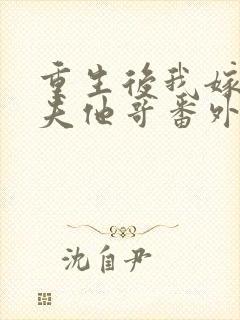 重生後我嫁
夫他哥番外
沈自尹